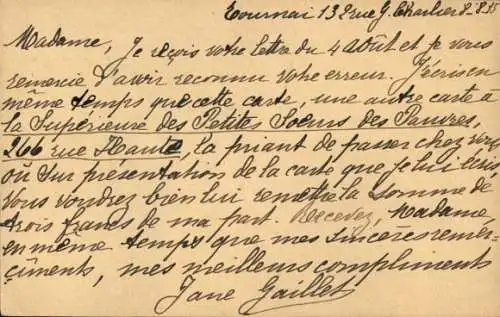 Tournai 13 rue G. Charlier 8-8-35
Madame, Je reçois votre lettre du 4 Août et je vous
remercie d'avoir reconnu votre erreur. J'écris en
même temps que cette carte, une autre carte à
la Supérieure des Petites Soeurs des Pauvres,
266 rue Haute, la priant de passer chez vous
où sur présentation de la carte que je lui écris,
vous voudrez bien lui remettre la somme de
trois francs de ma part. Recevez, Madame
en même temps que mes sincères remer-
çiments, mes meilleurs compliments
Jane Gaillet